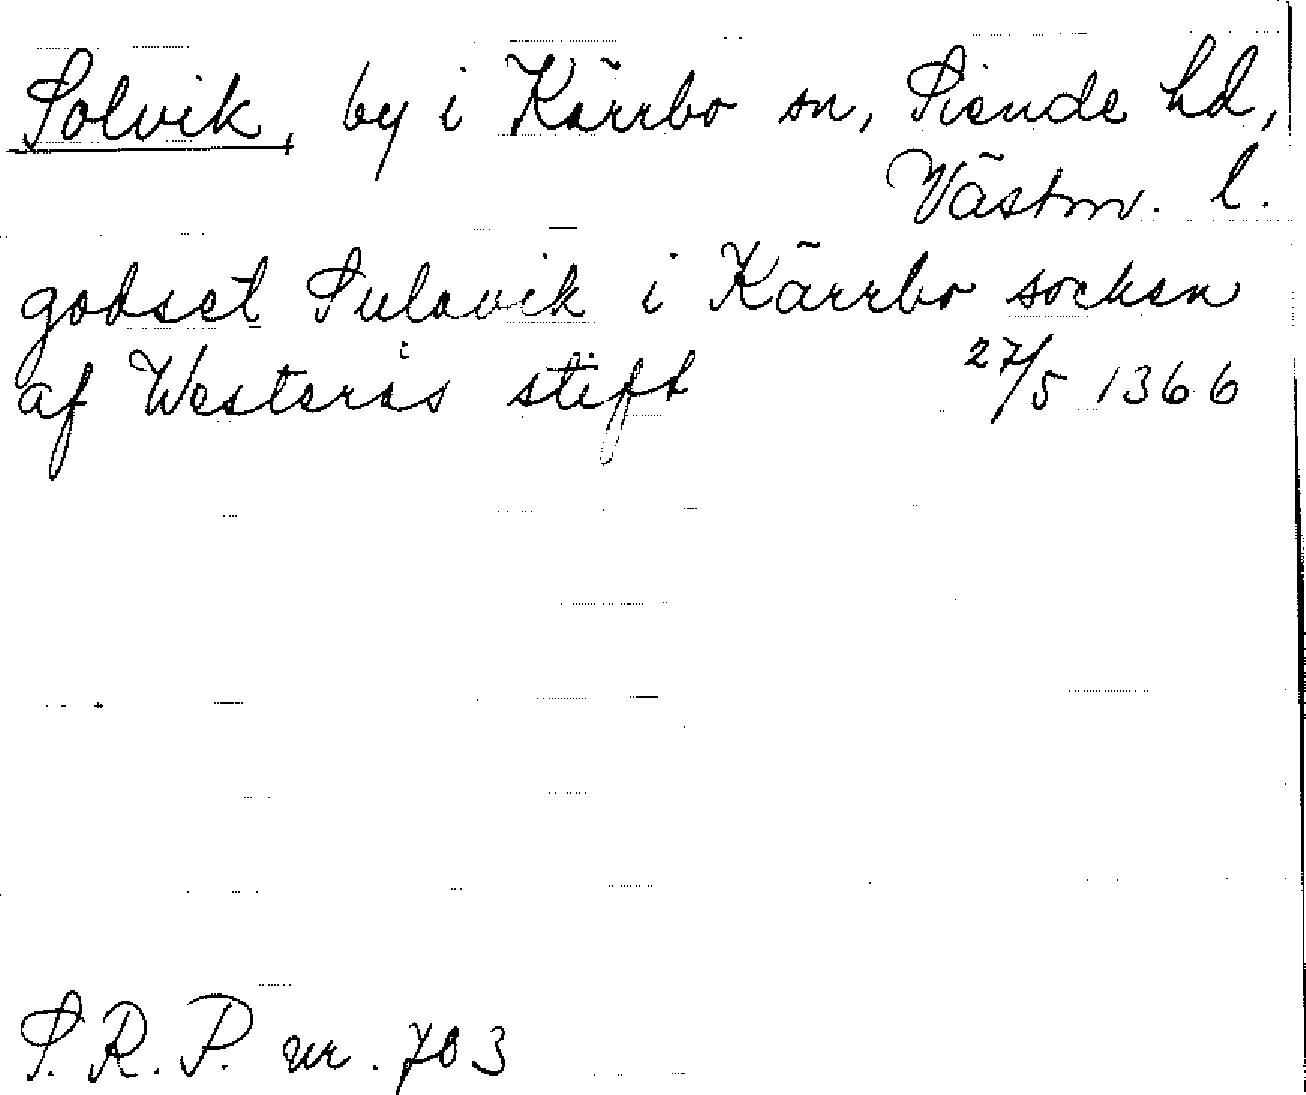 Solvik, by i Kärrbo sn, Siende hd,
Västm. l.
godset Sulavik i Kärrbo socken
af Westerås stift 27/5 1366
S.R.P. nr. 703